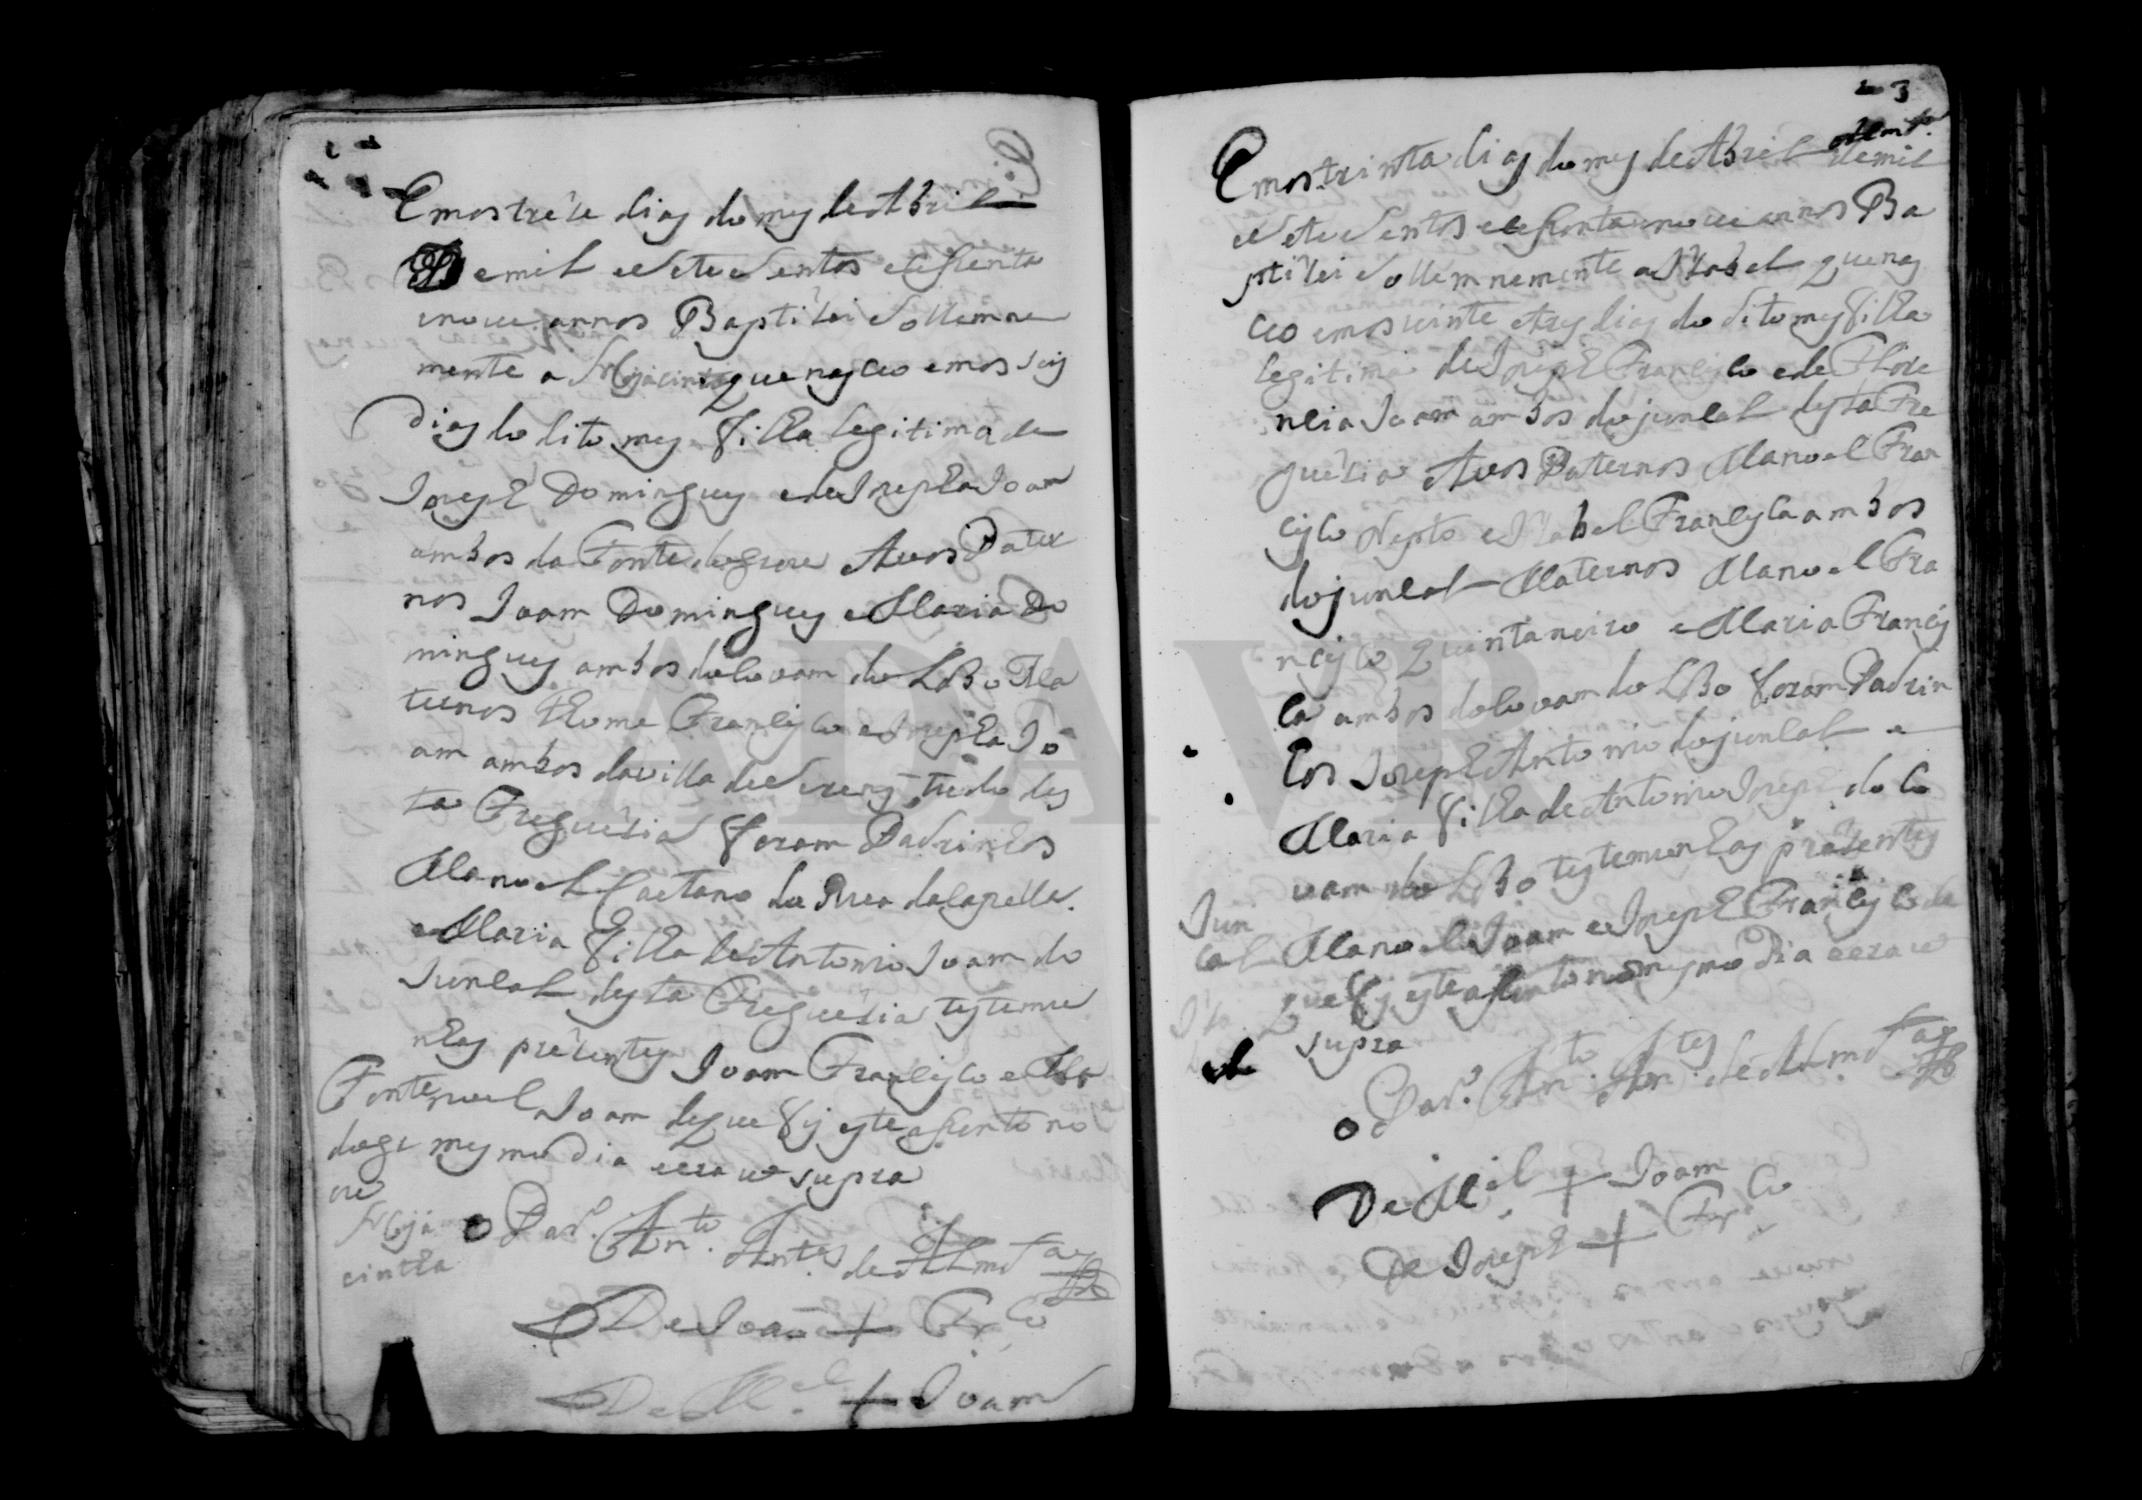 Emos treze dias do mes de Abril
de mil e Setecentos e cesenta
e nove annos Baptizei Sollemne
mente a Hyjacinta que nasceo emos seis
dias do dito mes filha legitima de
Joseph Domingues e de Josepha Joam
ambos da Fonte do grou Avos Pater
nos Joam Domingues e Maria Do
mingues ambos do Covam do Lobo Ma
ternos Thome Francisco e Josepha Jo
am ambos da villa de Sorens tudo des
ta Freguezia foram Padrinhos
Manoel Caetano da Rua da Capella
e Maria filha de Antonio Joam do
Juncal desta Freguezia testemu
nhas prezentes Joam Francisco e Ma
noel Joam de que fis este asento no
mesmo dia e era ut supra
Fonte
do gr
ou
Hyja
cintha
o Par. Ant.to Antes de Alm.da
De Joam + Fr.co
De M.el + Joam
3
Emos trinta dias do mes de Abril de mil
e Setecentos e cesenta e nove annos Ba
ptizei Sollemnemente a Izabel que nas
ceo emos vinte e tres dias do dito mes filha
legitima de Joseph Francisco e de Flore
ncia Joam ambos do juncal desta Fre
guezia Avos Paternos Manoel Fran
cisco Nepto e Izabel Francisca ambos
do juncal Maternos Manoel Fra
ncisco Quintaneiro e Maria Francis
ca ambos do Covam do Lobo foram Padrin
hos Joseph Antonio do juncal e
Maria filha de Antonio Joseph do Co
vam do Lobo testemunhas prazentes
Manoel Joam e Joseph Francisco de
que fis este asento no mesmo dia e era ut
supra
Jun
cal
Iza
o Par. Ant.to Antes de Alm.da
De M.el + Joam
De Joseph + Fr.co
ADAVR